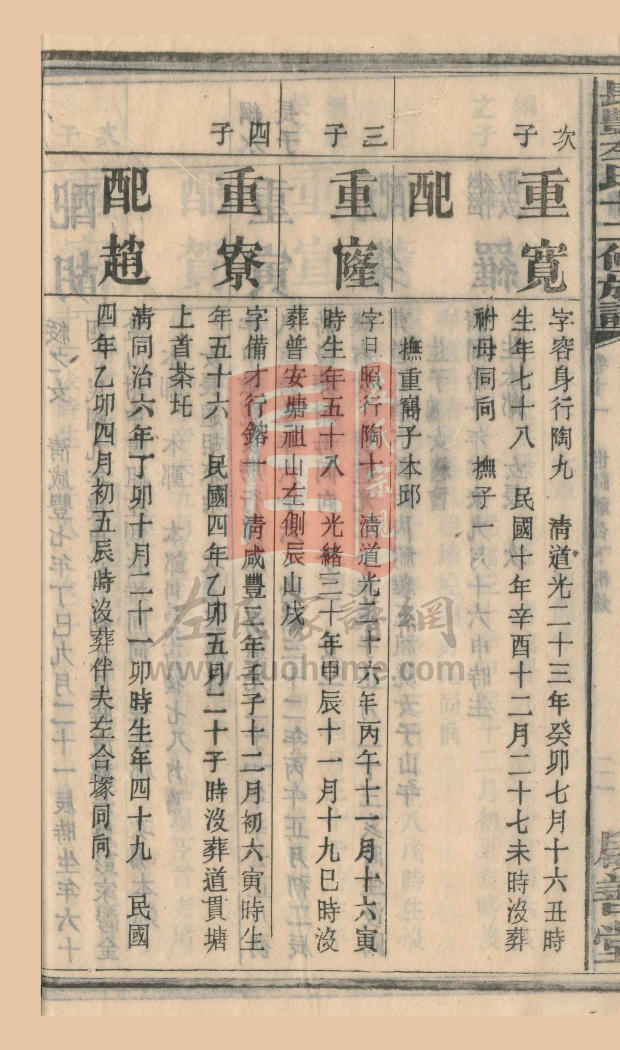 長豐左氏十二修族譜
善堂
次子
重寬
字容身行陶九 清道光二十三年癸卯七月十六丑時
生年七十八 民國十年辛酉十二月二十七未時沒葬
祔母同向 撫子一
配
撫重子本邱
三子
重窿
字日照行陶十 清道光二十六年丙午十一月十六寅
時生年五十八 光緒三十年甲辰十一月十九巳時沒
葬普安塘祖山左側辰山戌
四子
重寮
字備才行鎔一 清咸豐二年壬子十二月初六寅時生
年五十六 民國四年乙卯五月二十子時沒葬道貫塘
上首茶圫
配趙
清同治六年丁卯十月二十一卯時生年四十九 民國
四年乙卯四月初五辰時沒葬伴夫左合塚同向
左氏家譜網
www.zuohome.com